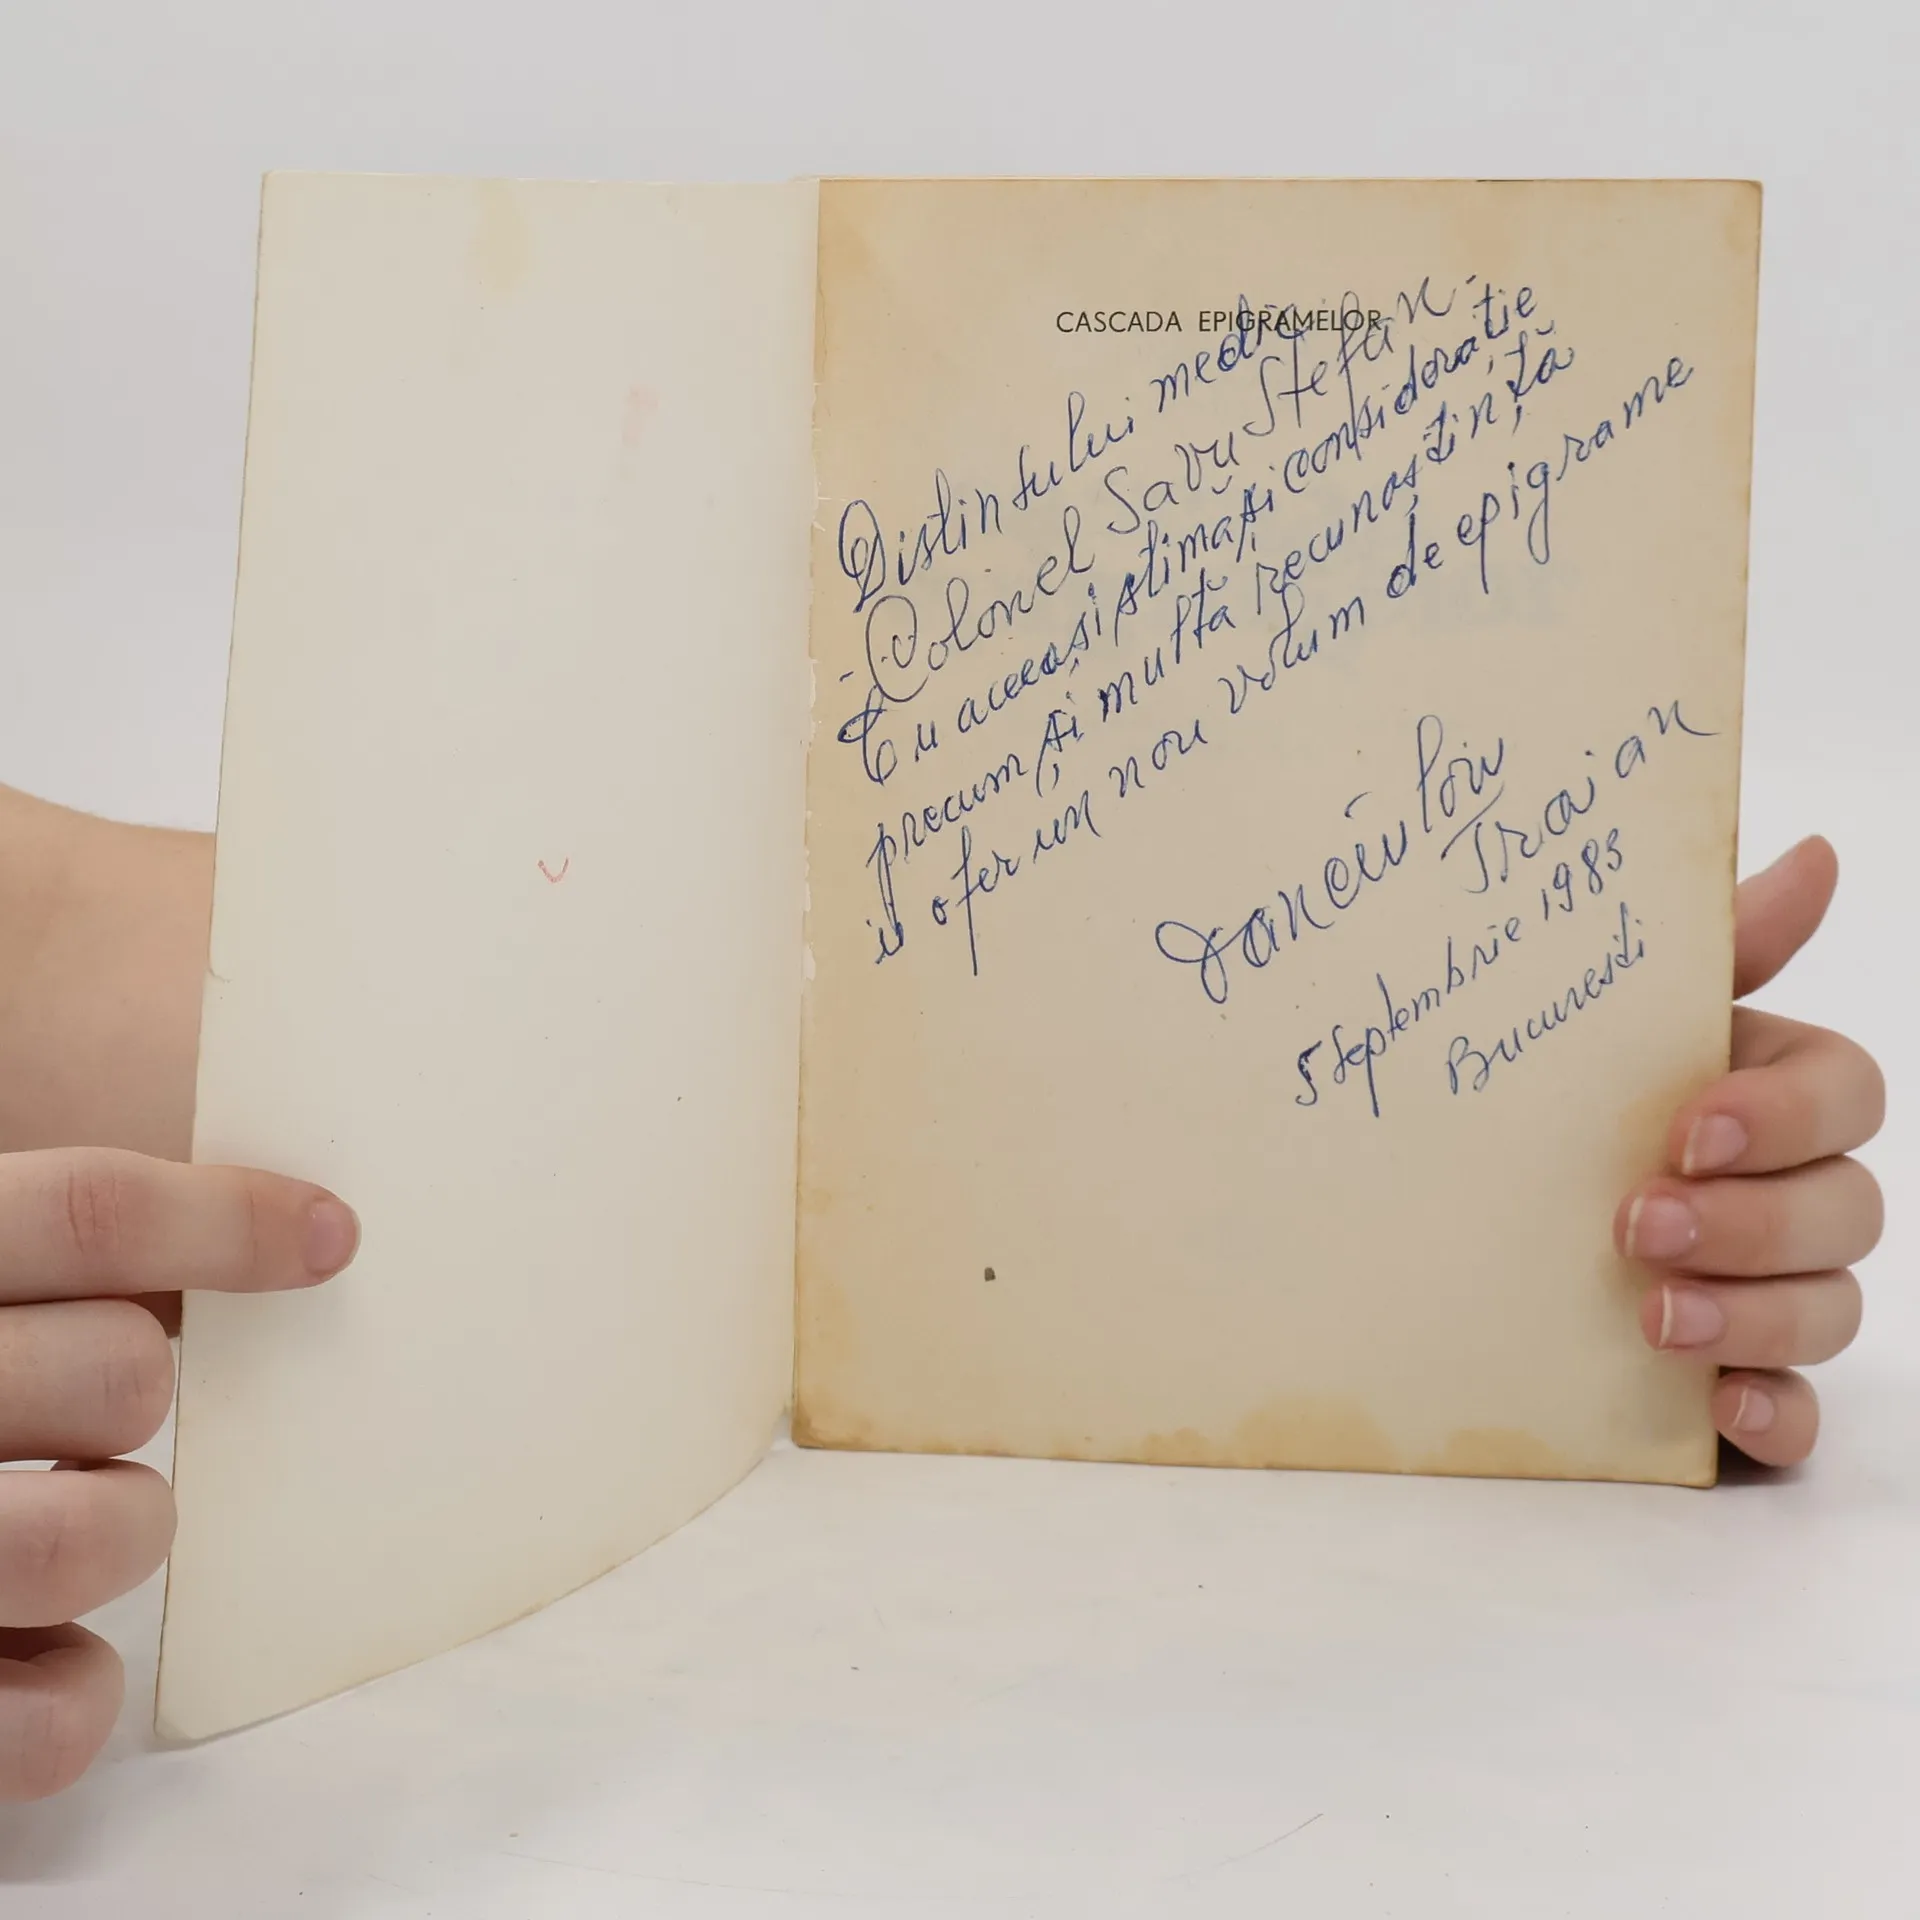 CASCADA EPIGRAMELOR
Distinsului medic
- Colonel Savu Ștefan -
Cu aceeași stimă și considerație
precum și multă recunoștință
îi ofer un nou volum de epigrame
Traian
5 Septembrie 1983
București